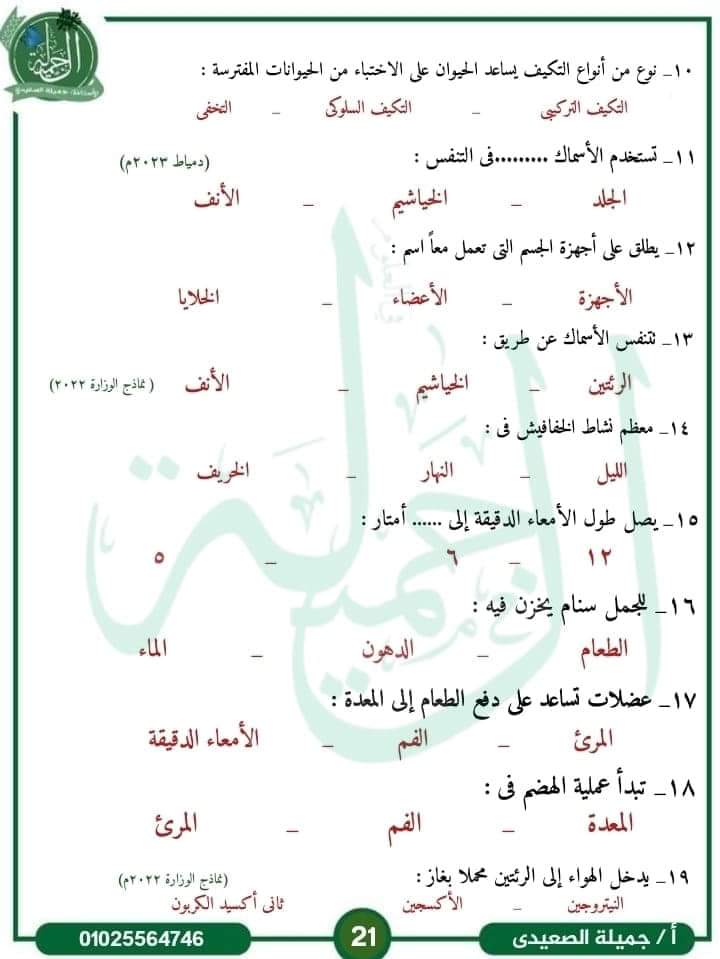 الجميلة
الأستاذة/ جميلة الصعيدى
١٠_ نوع من أنواع التكيف يساعد الحيوان على الاختباء من الحيوانات المفترسة :
التكيف التركيبى _ التكيف السلوكى _ التخفى
١١_ تستخدم الأسماك .........فى التنفس : (دمياط ٢٠٢٣م)
الجلد _ الخياشيم _ الأنف
١٢_ يطلق على أجهزة الجسم التى تعمل معاً اسم :
الأجهزة _ الأعضاء _ الخلايا
١٣_ تتنفس الأسماك عن طريق :
الرئتين _ الخياشيم _ الأنف ( نماذج الوزارة ٢٠٢٢)
١٤_ معظم نشاط الخفافيش فى :
الليل _ النهار _ الخريف
١٥_ يصل طول الأمعاء الدقيقة إلى ...... أمتار :
١٢ _ ٦ _ ٥
١٦_ للجمل سنام يخزن فيه :
الطعام _ الدهون _ الماء
١٧_ عضلات تساعد على دفع الطعام إلى المعدة :
المرئ _ الفم _ الأمعاء الدقيقة
١٨_ تبدأ عملية الهضم فى :
المعدة _ الفم _ المرئ
١٩_ يدخل الهواء إلى الرئتين محملا بغاز : (نماذج الوزارة ٢٠٢٢م)
النيتروجين _ الأكسجين _ ثانى أكسيد الكربون
أ / جميلة الصعيدى 21 01025564746
الجميلة
فى العلوم